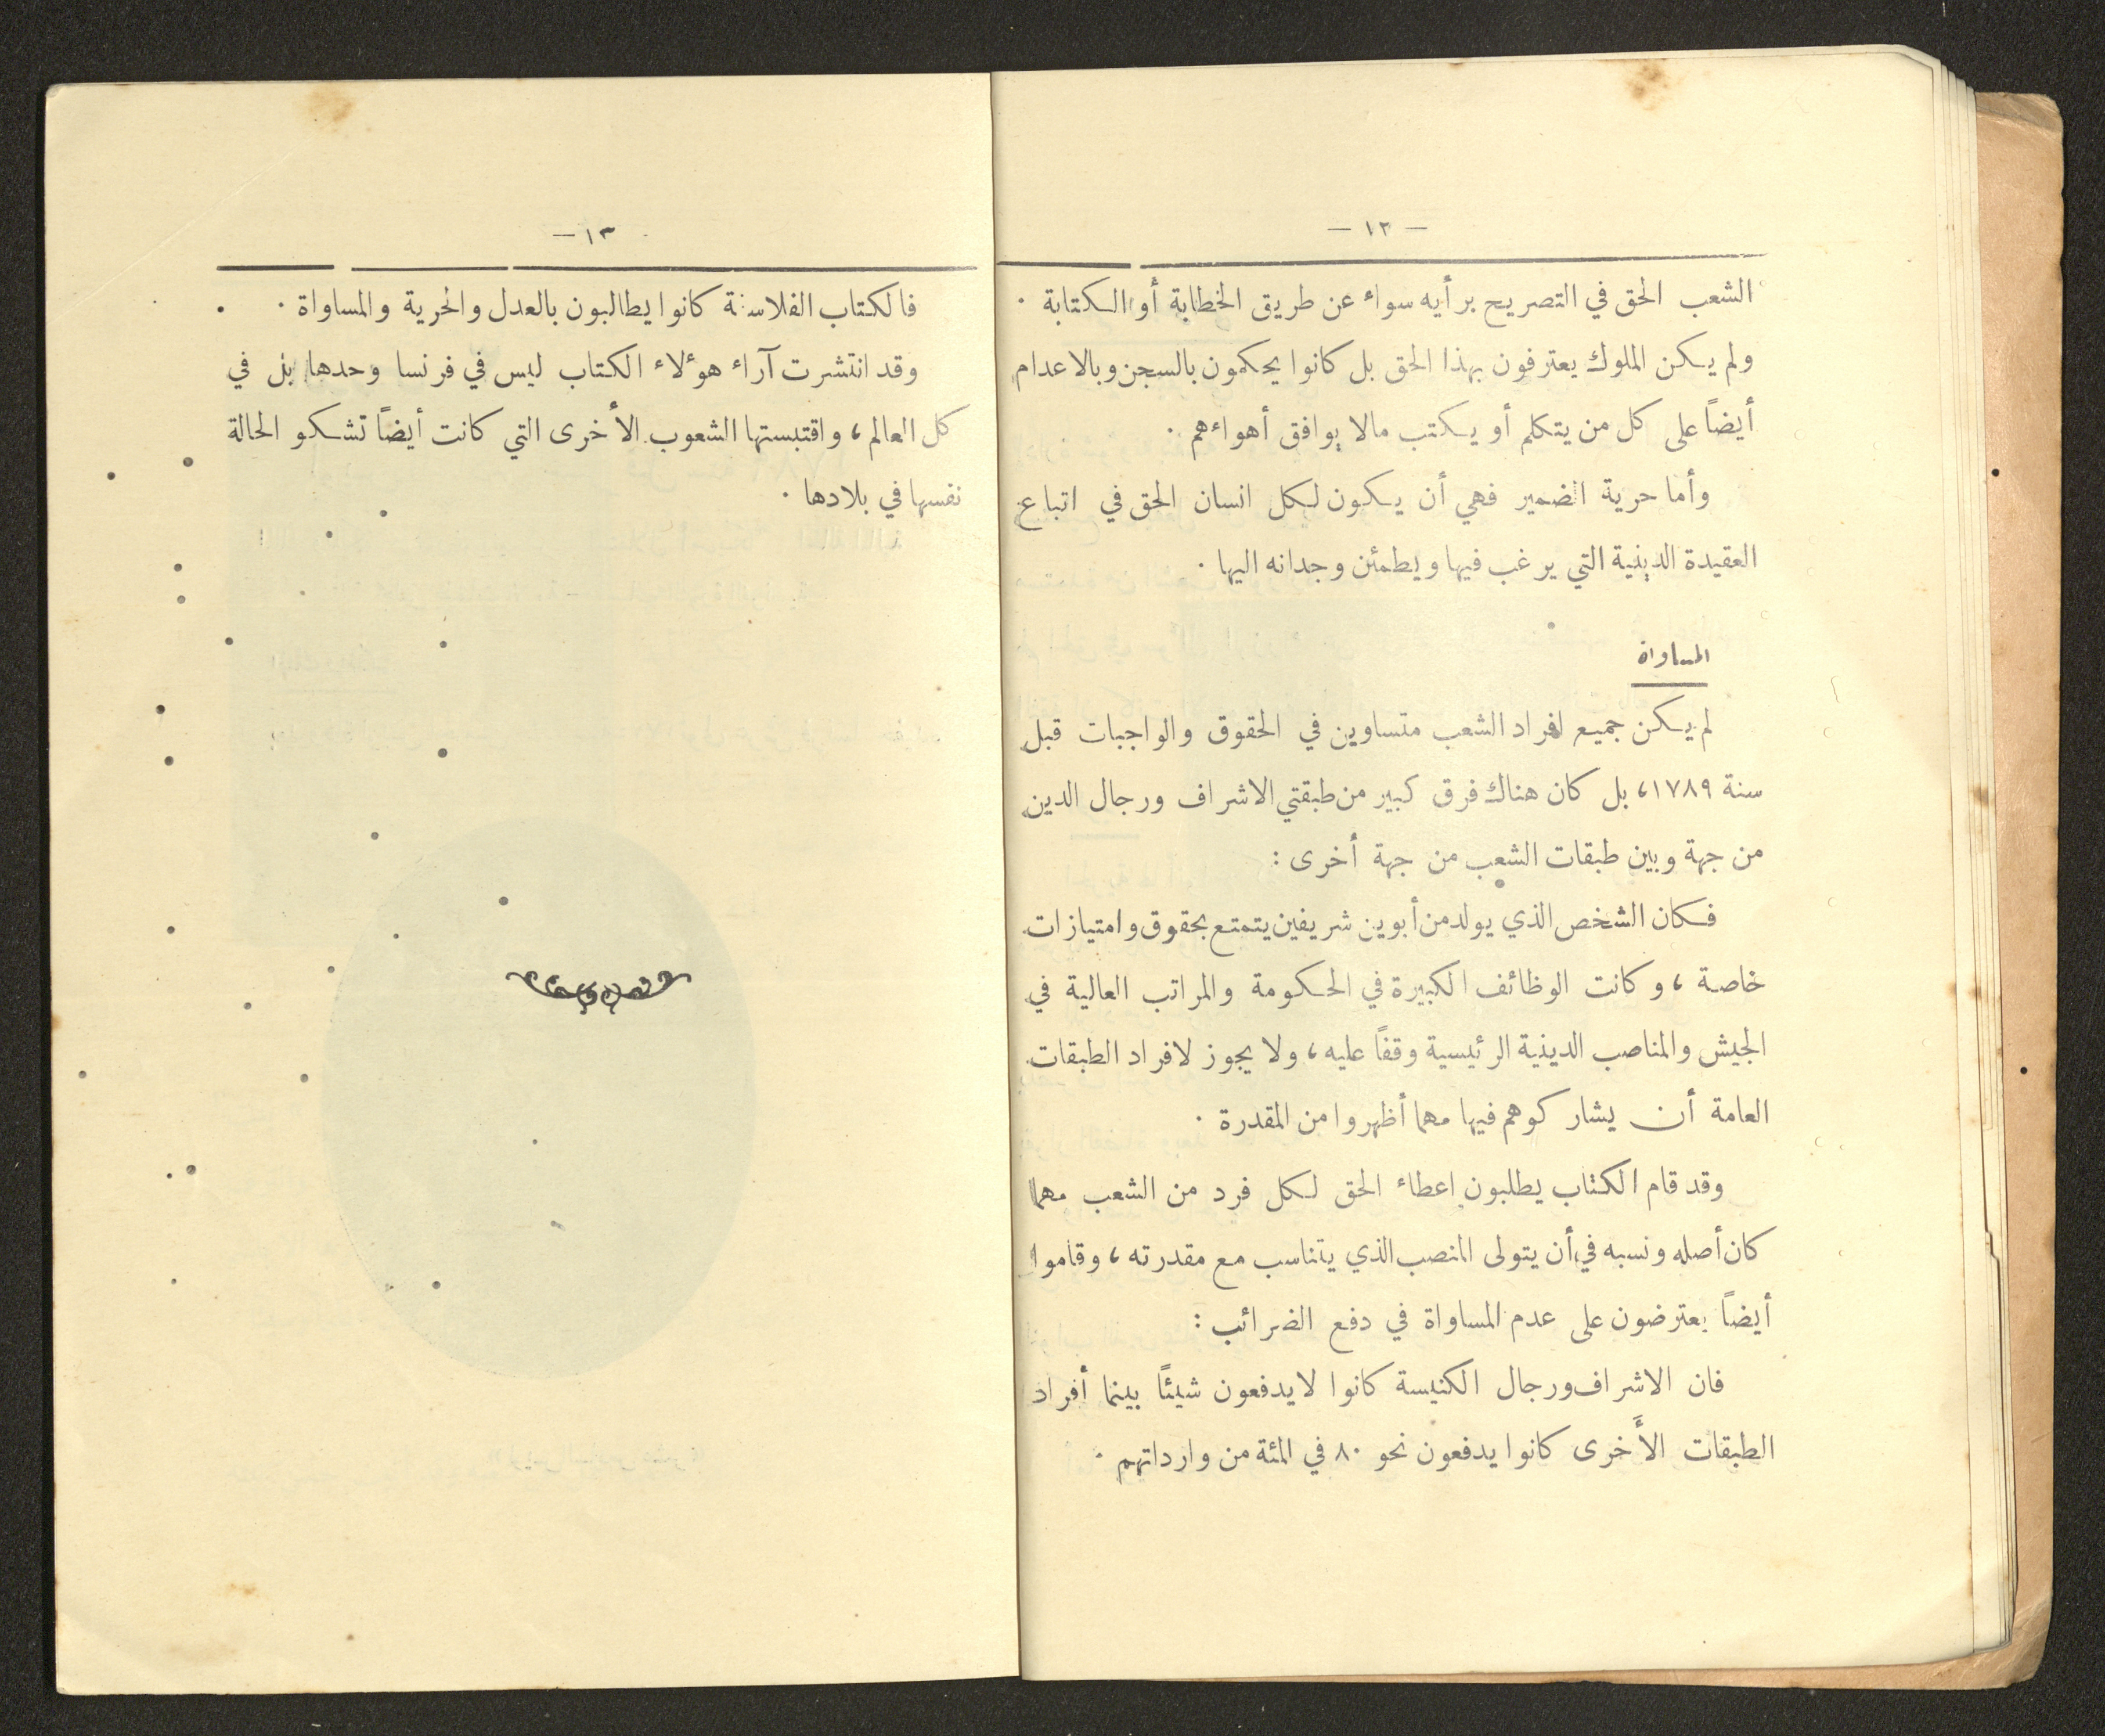 — ١٢ —
الشعب الحق في التصريح برأيه سواء عن طريق الخطابة أو الكتابة ٠
ولم يكن الملوك يعترفون بهذا الحق بل كانوا يحكمون بالسجن وبالاعدام
أيضاً على كل من يتكلم أو يكتب مالا يوافق أهواءهم ٠
وأما حرية الضمير فهي أن يكون لكل انسان الحق في اتباع
العقيدة الدينية التي يرغب فيها ويطمئن وجدانه اليها ٠
المساواة
لم يكن جميع افراد الشعب متساوين في الحقوق والواجبات قبل
سنة ١٧٨٩، بل كان هناك فرق كبير من طبقتي الاشراف ورجال الدين
من جهة وبين طبقات الشعب من جهة أخرى :
فكان الشخص الذي يولد من أبوين شريفين يتمتع بحقوق وامتيازات
خاصة ، وكانت الوظائف الكبيرة في الحكومة والمراتب العالية في
الجيش والمناصب الدينية الرئيسية وقفاً عليه ، ولا يجوز لافراد الطبقات
العامة أن يشاركوهم فيها مهما أظهروا من المقدرة ٠
وقد قام الكتاب يطلبون اعطاء الحق لكل فرد من الشعب مهما
كان أصله ونسبه في أن يتولى المنصب الذي يتناسب مع مقدرته ، وقاموا
أيضاً يعترضون على عدم المساواة في دفع الضرائب :
فان الاشراف ورجال الكنيسة كانوا لا يدفعون شيئاً بينما أفراد
الطبقات الأَخرى كانوا يدفعون نحو ٨٠ في المئة من وارداتهم ٠
١٣ —
فالكتاب الفلاسفة كانوا يطالبون بالعدل والحرية والمساواة ٠
وقد انتشرت آراء هوٴلاء الكتاب ليس في فرنسا وحدها بل في
كل العالم ، واقتبستها الشعوب الأخرى التي كانت أيضاً تشكو الحالة
نفسها في بلادها ٠